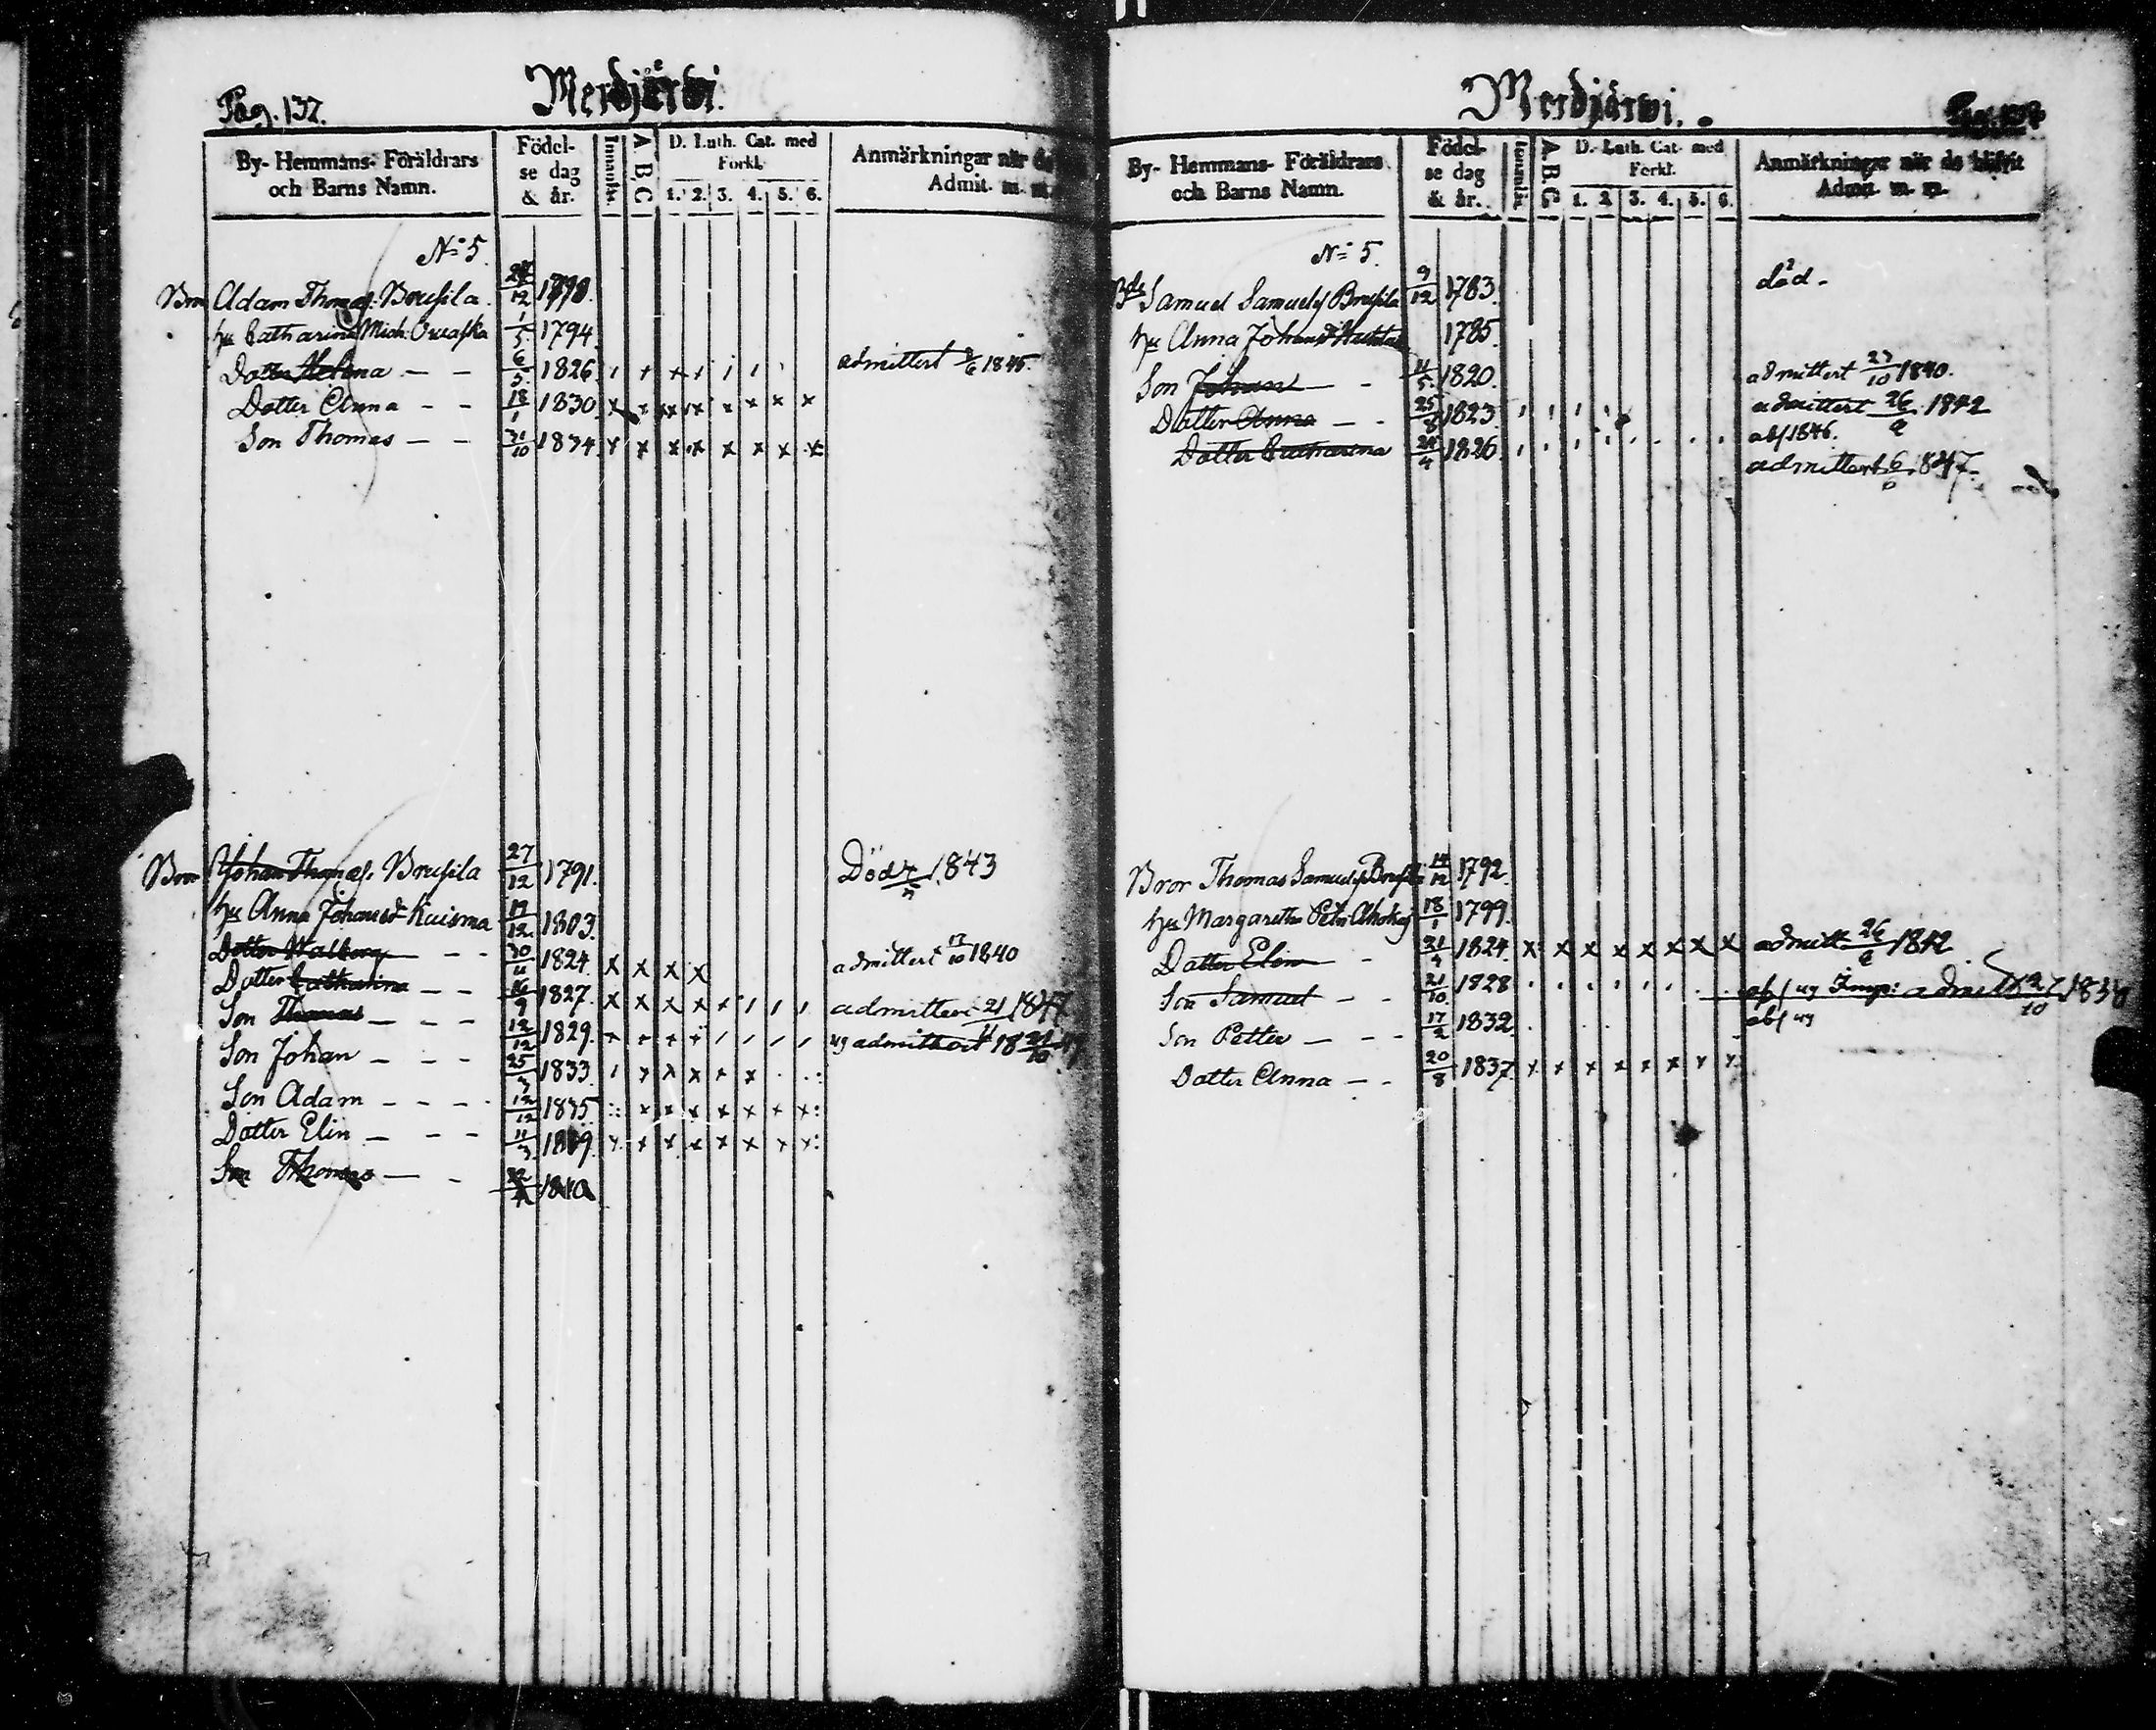 Pag. 137.
Merdjärwi.
By- Hemmans- Föräldrars och Barns Namn.
Födel-se dag & år.
Innanläs.
A B C
D. Luth. Cat. med Förkl.
1. 2. 3. 4. 5. 6.
Anmärkningar när de
Admit. m. m.
No 5.
Bror Adam Thomas. Brusila 12 1790.
hu Catharina Mich: 1/5 1794.
Dotter Helena — — 6/5 1826 admittert 1845.
Dotter Anna - - 18/1 1830 x x x x x x x x
Son Thomas — — 31/10 1834 x x x x x x x x
Bror Johan Thomas. Brusila 27/12 1791. Död 1843
hu Anna Johansdr Kuisma 12 1803.
Dotter Walborg — - - 30/11 1824 x x x x admittert 13/10 1840
Dotter Catharina — — 16/9 1827 x x x x admittert 21 1847
Son Thomas — - — 12/12 1829 admittert 18
Son Johan — - - 25/3 1833
Son Adam — - — 12/12 1835
Dotter Elin — — — 11/3 1839
Son Thomas — -
Merdjärwi.
By- Hemmans- Föräldrars och Barns Namn.
Födel-se dag & år.
Innanläs.
A B C
D. Luth. Cat. med Förkl.
1. 2. 3. 4. 5. 6.
Anmärkningar när de blifvit
Admit. m. m.
No 5.
Samuel Samuels Brusila 9/12 1783 död -
hu Anna Johansdr 1785.
Son Johan — - 5 1820. admittert 23/10 1840.
Dotter Anna — - 25/8 1823 admittert 26 1842
Dotter Catharina 24/4 1826 abs 1846.
admittert 6 1847.
Bror Thomas Samuels Brusila 14/12 1792
hu Margaretha Petr. 18/1 1799.
Dotter Elin — - 21/4 1824 x x x x x x x x admitt 26 1842
Son Samuel — - 21/10 1828
Son Petter — - - 17/2 1832 abs
Dotter Anna — - 20/8 1837 x x x x x x x x